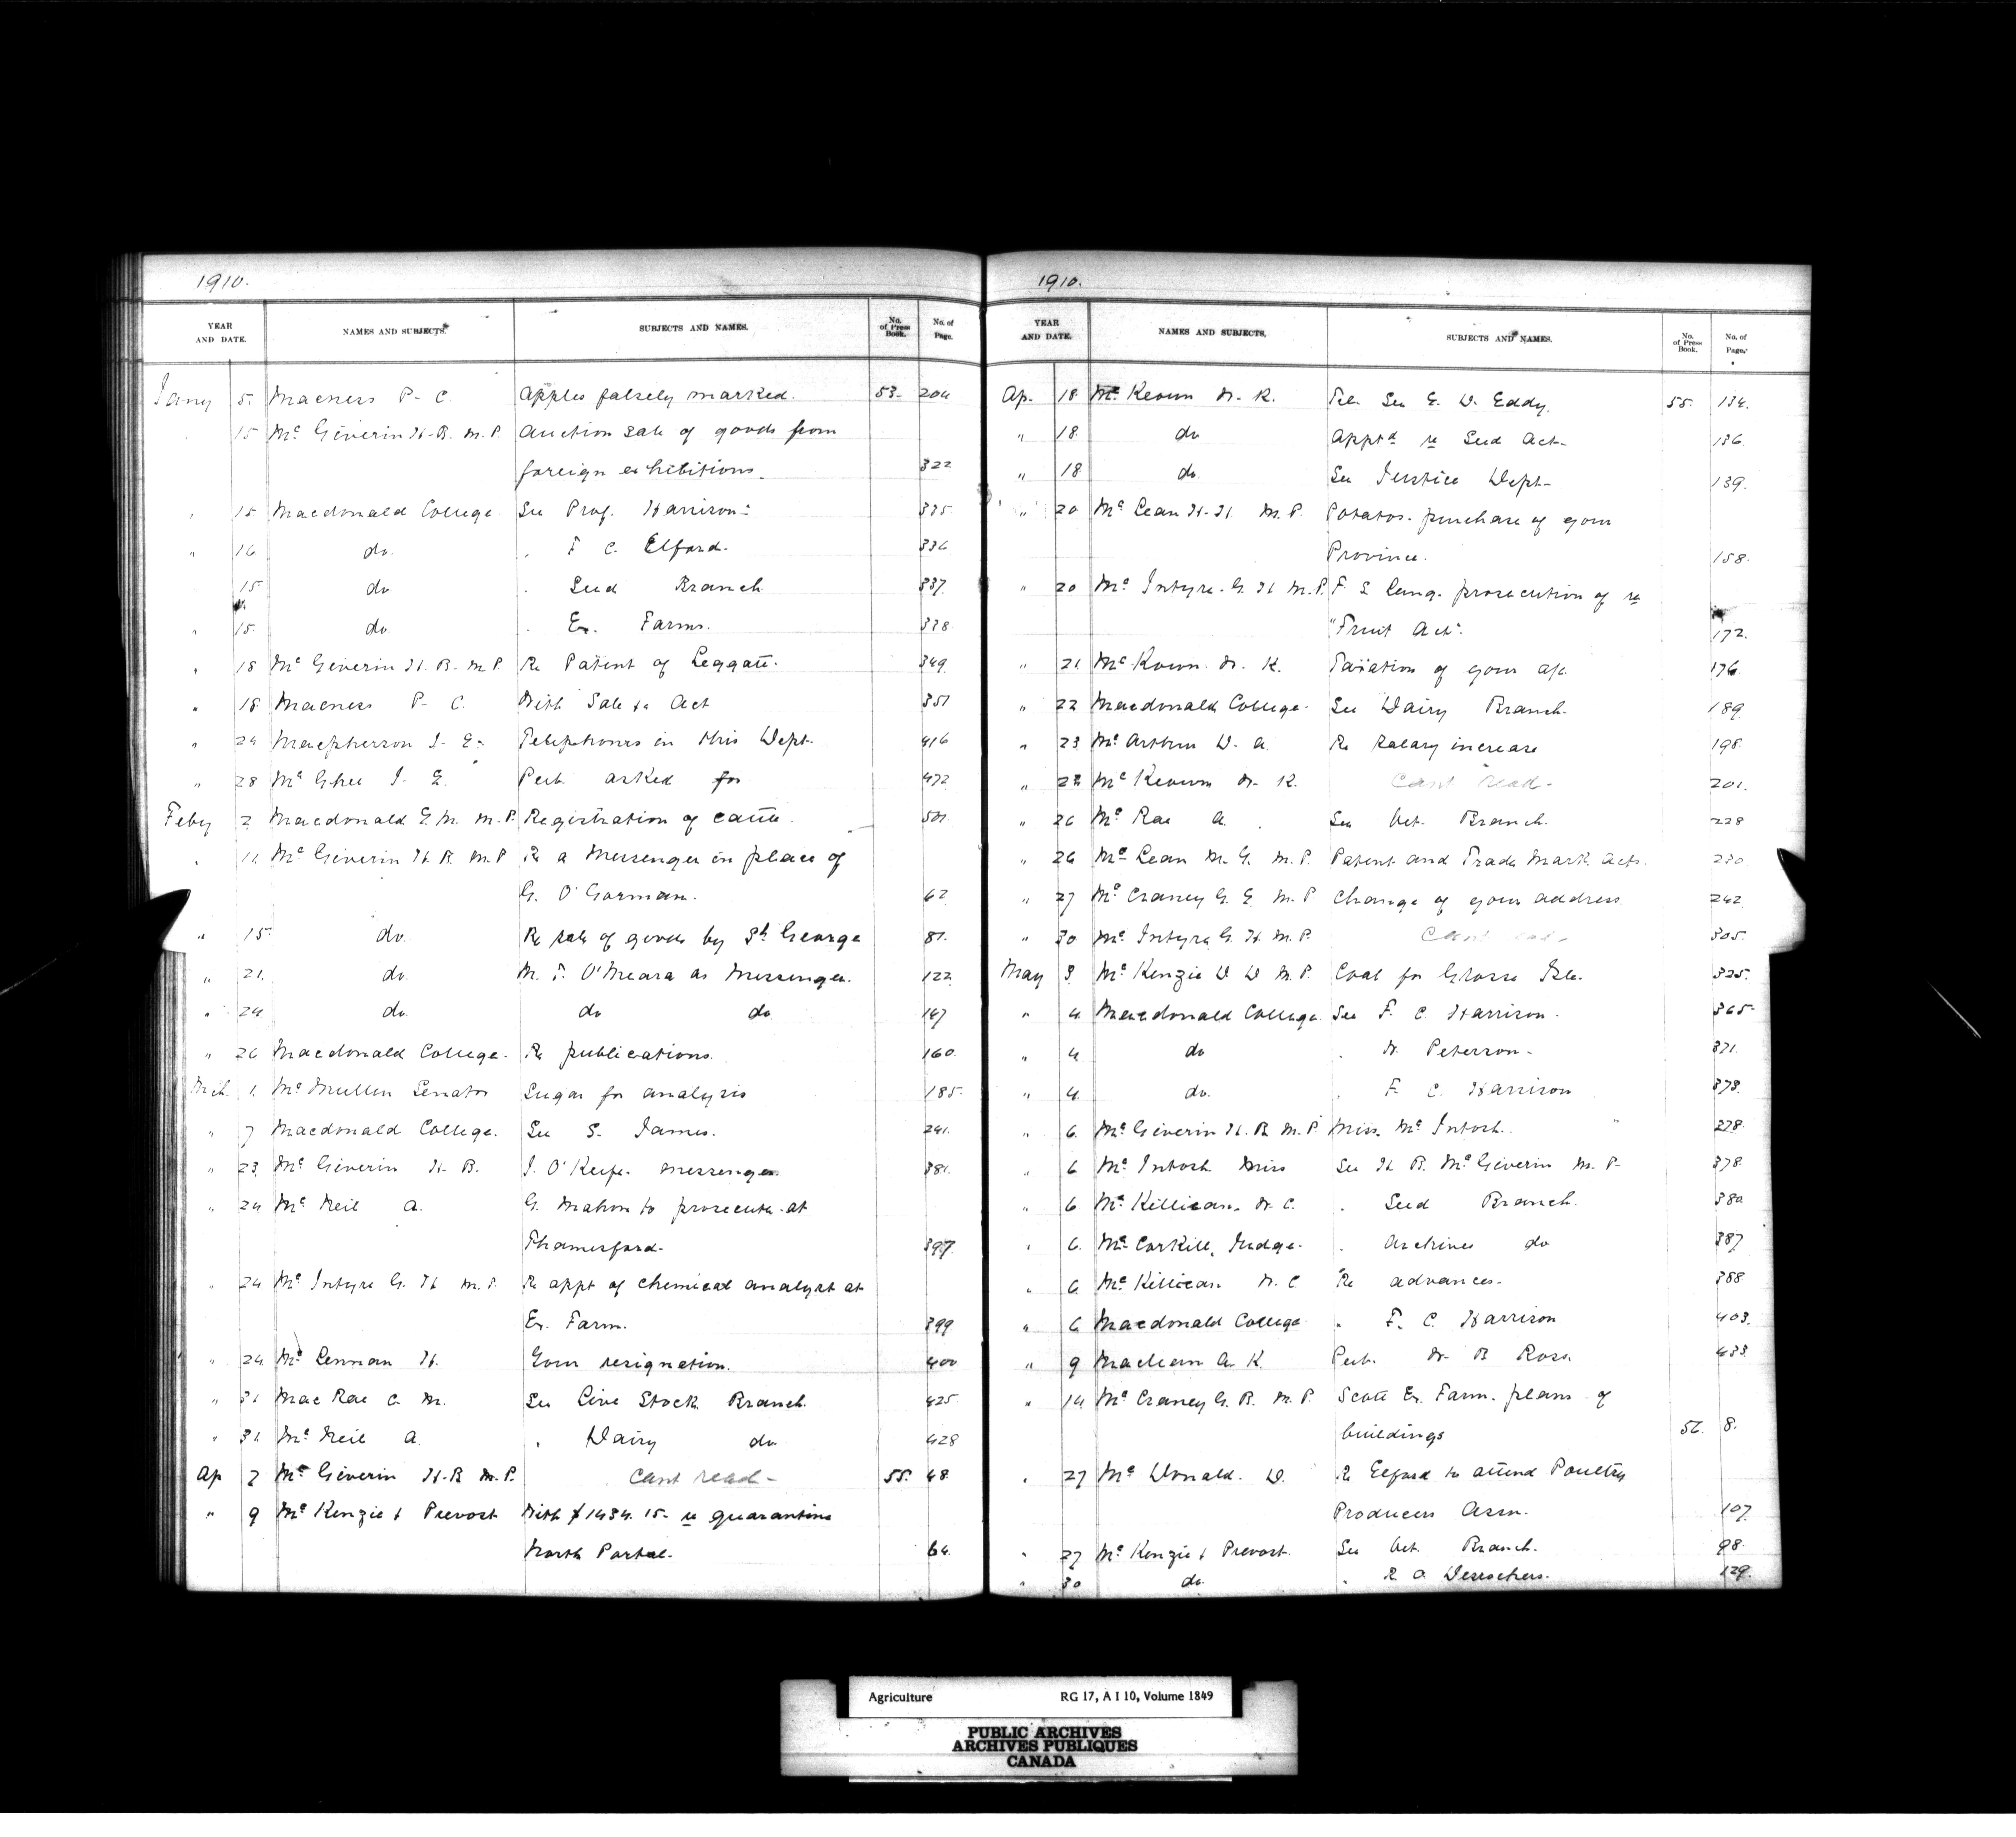 1910.
YEAR AND DATE. NAMES AND SUBJECTS. SUBJECTS AND NAMES. No. of Press Book. No. of Page.
Jany 5. Macness P. C. Apples falsely marked. 53. 204
15 Mc Giverin H. B. M.P. Auction sale of goods from
foreign exhibitions. 322
15 Macdonald College See Prof. Harrison 335
" 16 do. " F C. Elford. 336
15 do " Seed Branch 337.
" 15. do. " Ex. Farms. 338
" 18 Mc Giverin H. B. M.P. Re Patent of Leggatt. 349
" 18 Macness P. C. With Sale &c Act 351
" 24 Macpherson J. E. Telephones in this Dept. 416
" 28 Mc Ghee J. E. Pub. asked for 472
Feby 2 Macdonald E. M. M.P. Registration of cattle. 501
" 11 Mc Giverin H. B. M.P. Re a Messenger in place of
G. O'Gorman. 62
" 15 do. Re sale of goods by St George 81.
" 21. do. M. F. O'Meara as Messenger. 122
" 24 do. do do 147
" 26 Macdonald College. Re publications. 160.
Mch. 1. Mc Mullen Senator Sugar for analysis 185.
" 7 Macdonald College. See S. James. 241.
" 23 Mc Giverin H. B. J. O'Keefe. messenger 381.
" 24 Mc Neil A. G. Mahon to prosecute at
Thamesford. 397.
" 24 Mc Intyre G. H. M.P. Re appt of chemical analyst at
Ex. Farm. 399
" 24 Mc Lennan H. Your resignation. 400
" 31 Mac Rae C. M. See Live Stock Branch. 425
" 31. Mc Neil A. " Dairy do 428
Ap 7 Mc Giverin H. B. M.P. Cant read - 55. 48.
" 9 Mc Kenzie & Prevost With $1434.15- re quarantine
North Portal. 64.
1910.
YEAR AND DATE. NAMES AND SUBJECTS. SUBJECTS AND NAMES. No. of Press Book. No. of Page.
Ap. 18 Mc Keown W. K. Tel. See E. D. Eddy. 55. 134.
" 18 do Apptd re Seed Act- 136
" 18 do. See Justice Dept- 139.
" 20 Mc Lean H. H. M.P. Potatos. purchase of your
Province. 158.
" 20 Mc Intyre G. H M.P. F. S Lang. prosecution of re
"Fruit Act". 172.
" 21 Mc Keown W. K. Taxation of your a/c. 176
" 22 Macdonald College. See Dairy Branch. 189
" 23 Mc Arthur D. A. Re salary increase 198.
" 22 Mc Keown W. K. Cant read - 201.
" 26 Mc Rae A. See Vet. Branch. 228
" 26 Mc Lean M. G. M.P. Patent and Trade Mark Acts. 230
" 27 Mc Craney G. E. M.P. Change of your address 242
" 30 Mc Intyre G. H. M.P. Cant 305.
May 3. Mc Kenzie D D M.P. Coal for Grosse Isle. 325.
" 4 Macdonald College. See F. C. Harrison. 365.
" 4 do " W. Peterson. 371.
" 4 do. " F. C. Harrison 373.
" 6. Mc Giverin H. B. M.P. Miss. Mc Intosh. 378.
" 6 Mc Intosh Miss See H. B. Mc Giverin M.P. 378.
" 6 Mc Killican W. C. " Seed Branch. 380
" 6. Mc Corkill, Judge. " Archives do 387
" 6 Mc Killican W. C. Re advances. 388
" 6 Macdonald College " F. C. Harrison 403.
" 9 Maclean A. K. Pub. W. B Ross. 433.
" 14 Mc Craney G. E. M.P. Scott Ex. Farm. plans of
buildings 56. 8.
" 27 Mc Donald. D. Re Elford to attend Poultry
Producers Assn. 107
" 27 Mc Kenzie & Prevost. See Vet. Branch. 98.
" 30 do. " R A Desrochers. 129.
Agriculture RG 17, A I 10, Volume 1849
PUBLIC ARCHIVES
ARCHIVES PUBLIQUES
CANADA